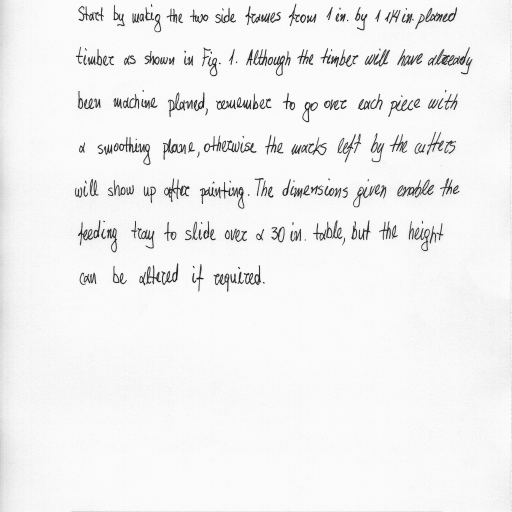 Start by making the two side frames from 1 in. by 1 1/4 in. planed
timber as shown in Fig. 1. Although the timber will have already
been machine planed, remember to go over each piece with
a smoothing plane, otherwise the marks left by the cutters
will show up after painting. The dimensions given enable the
feeding tray to slide over a 30 in. table, but the height
can be altered if required.